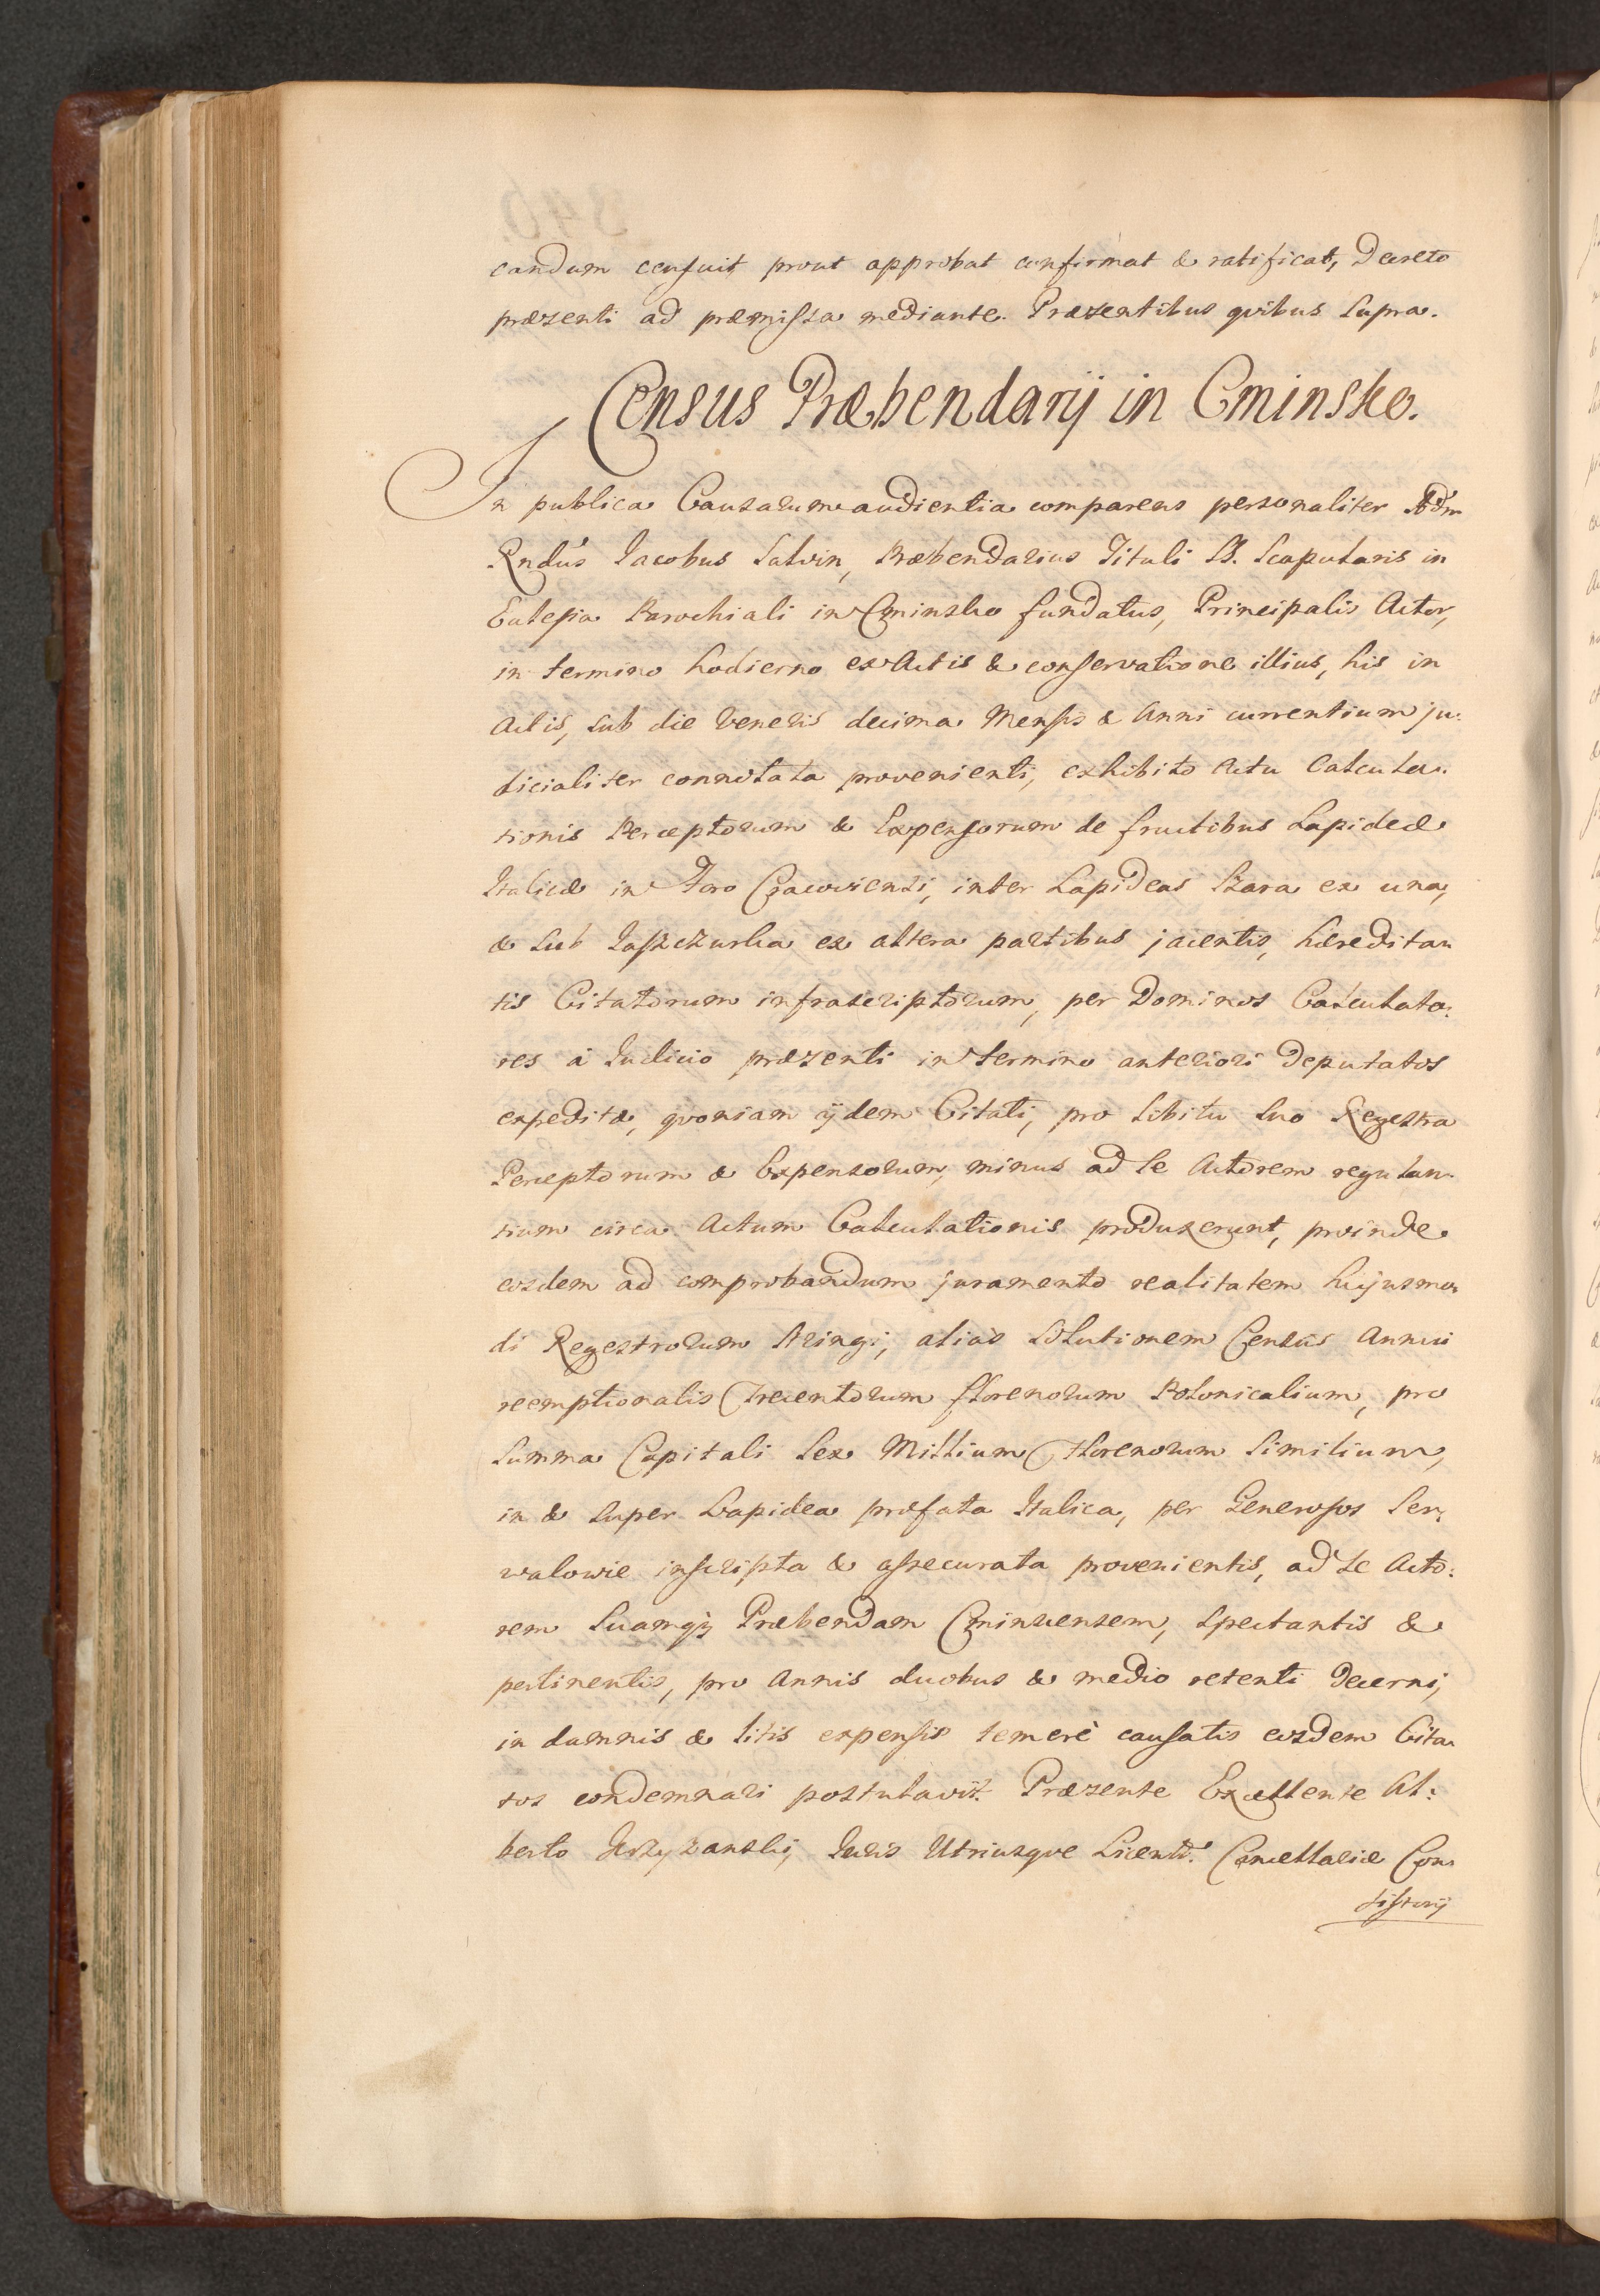 candum censuit prout approbat confirmat & ratificat, Decreto
præsenti ad præmissa mediante. Præsentibus qvibus supra.
Census Præbendarij in Cminsko.
In publica Causarum audientia comparens personaliter Adm
Rndus Jacobus Salvin, Præbendarius Tituli SS. Scapularis in
Eclesia Parochiali in Cminsko fundatus, Principalis Actor,
in termino hodierno ex Actis & conservatione illius, his in
Actis, sub die Veneris decima Mensis & Anni currentium ju:
dicialiter connotata provenienti, exhibito Actu Calcula:
tionis Perceptorum & Expensorum de fructibus Lapideæ
Italicæ in Foro Cracoviensi, inter Lapideas Szara ex una,
& sub Jaszczurka ex altera partibus jacentis, hæredita:
tis Citatorum infrascriptorum, per Dominos Calculato:
res à Judicio præsenti in termino anteriori Deputatos
expeditæ, qvoniam ijdem Citati, pro libitu suo Regestra
Perceptorum & Expensorum, minus ad se Actorem regulan:
tium circa Actum Calculationis produxerunt, proinde
eosdem ad comprobandum juramento realitatem hujusmo:
di Regestrorum stringi, alias solutionem Census Annui
reemptionalis Trecentorum florenorum Polonicalium, pro
Summa Capitali Sex Millium Florenorum similium,
in & super Lapidea præfata Italica, per Generosos Ser:
walowie inscripta & assecurata provenientis, ad se Acto:
rem Suamq; Præbendam Cminscensem, spectantis &
pertinentis, pro Annis duobus & medio retenti Decerni,
in damnis & litis expensis temerè causatis eosdem Cita:
tos condemnari postulavit. Præsente Excellente Al:
berto Juris Utriusqve Licentto. Cancellariæ Con:
sistorij